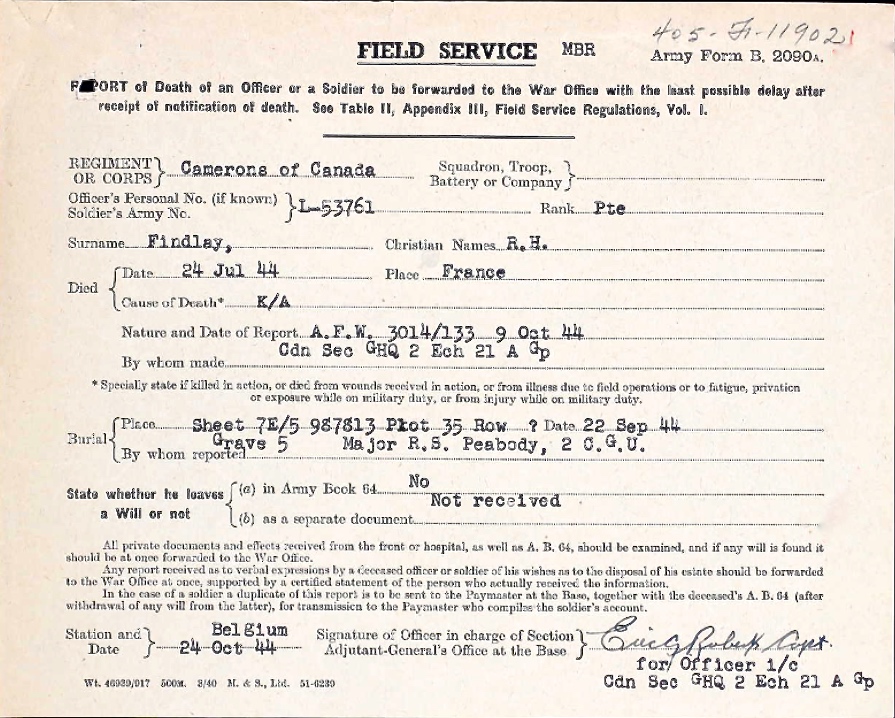 405-F-11902
FIELD SERVICE MBR
Army Form B. 2090A.
REPORT of Death of an Officer or a Soldier to be forwarded to the War Office with the least possible delay after
receipt of notification of death. See Table II, Appendix III, Field Service Regulations, Vol. I.
REGIMENT OR CORPS } Camerons of Canada Squadron, Troop, Battery or Company }
Officer's Personal No. (if known)
Soldier's Army No. } L-53761 Rank Pte
Surname Findlay, Christian Names R.H.
Died { Date 24 Jul 44 Place France
Cause of Death* K/A
Nature and Date of Report A.F.W. 3014/133 9 Oct 44
By whom made Cdn Sec GHQ 2 Ech 21 A Gp
* Specially state if killed in action, or died from wounds received in action, or from illness due to field operations or to fatigue, privation
or exposure while on military duty, or from injury while on military duty.
Burial { Place Sheet 7E/5 987813 Plot 35 Row ? Date 22 Sep 44
Grave 5 Major R.S. Peabody, 2 C.G.U.
By whom reported
State whether he leaves a Will or not { (a) in Army Book 64 No
(b) as a separate document Not received
All private documents and effects received from the front or hospital, as well as A. B. 64, should be examined, and if any will is found it
should be at once forwarded to the War Office.
Any report received as to verbal expressions by a deceased officer or soldier of his wishes as to the disposal of his estate should be forwarded
to the War Office at once, supported by a certified statement of the person who actually received the information.
In the case of a soldier a duplicate of this report is to be sent to the Paymaster at the Base, together with the deceased's A. B. 64 (after
withdrawal of any will from the latter), for transmission to the Paymaster who compiles the soldier's account.
Station and Date } Belgium
24 Oct 44
Signature of Officer in charge of Section
Adjutant-General's Office at the Base } Capt.
for Officer i/c
Cdn Sec GHQ 2 Ech 21 A Gp
Wt. 46939/917 500M. 3/40 M. & S., Ltd. 51-6239